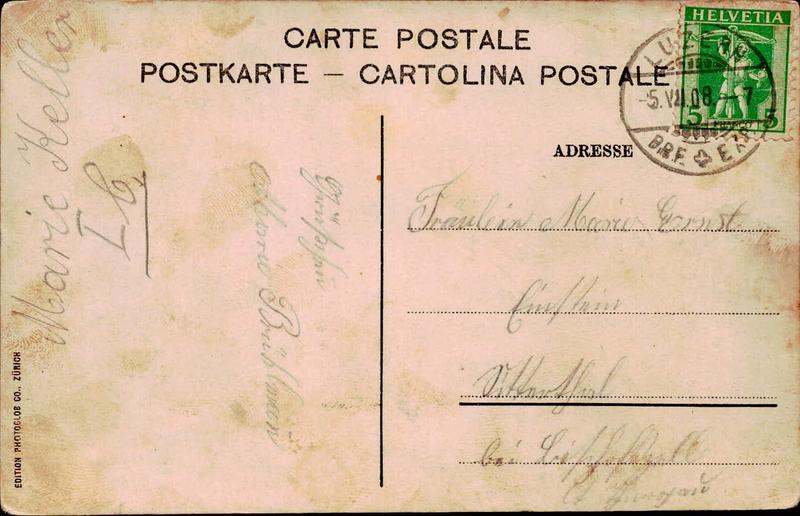 CARTE POSTALE
POSTKARTE – CARTOLINA POSTALE
HELVETIA
5 5
LUZERN
-5.VII.08.-7
BRF. EXP.
ADRESSE
Marie Keller
I b
Fräulein Marie Ernst
Einstein
Sitterthal
bei Bischofszell
EDITION PHOTOGLOB CO., ZÜRICH